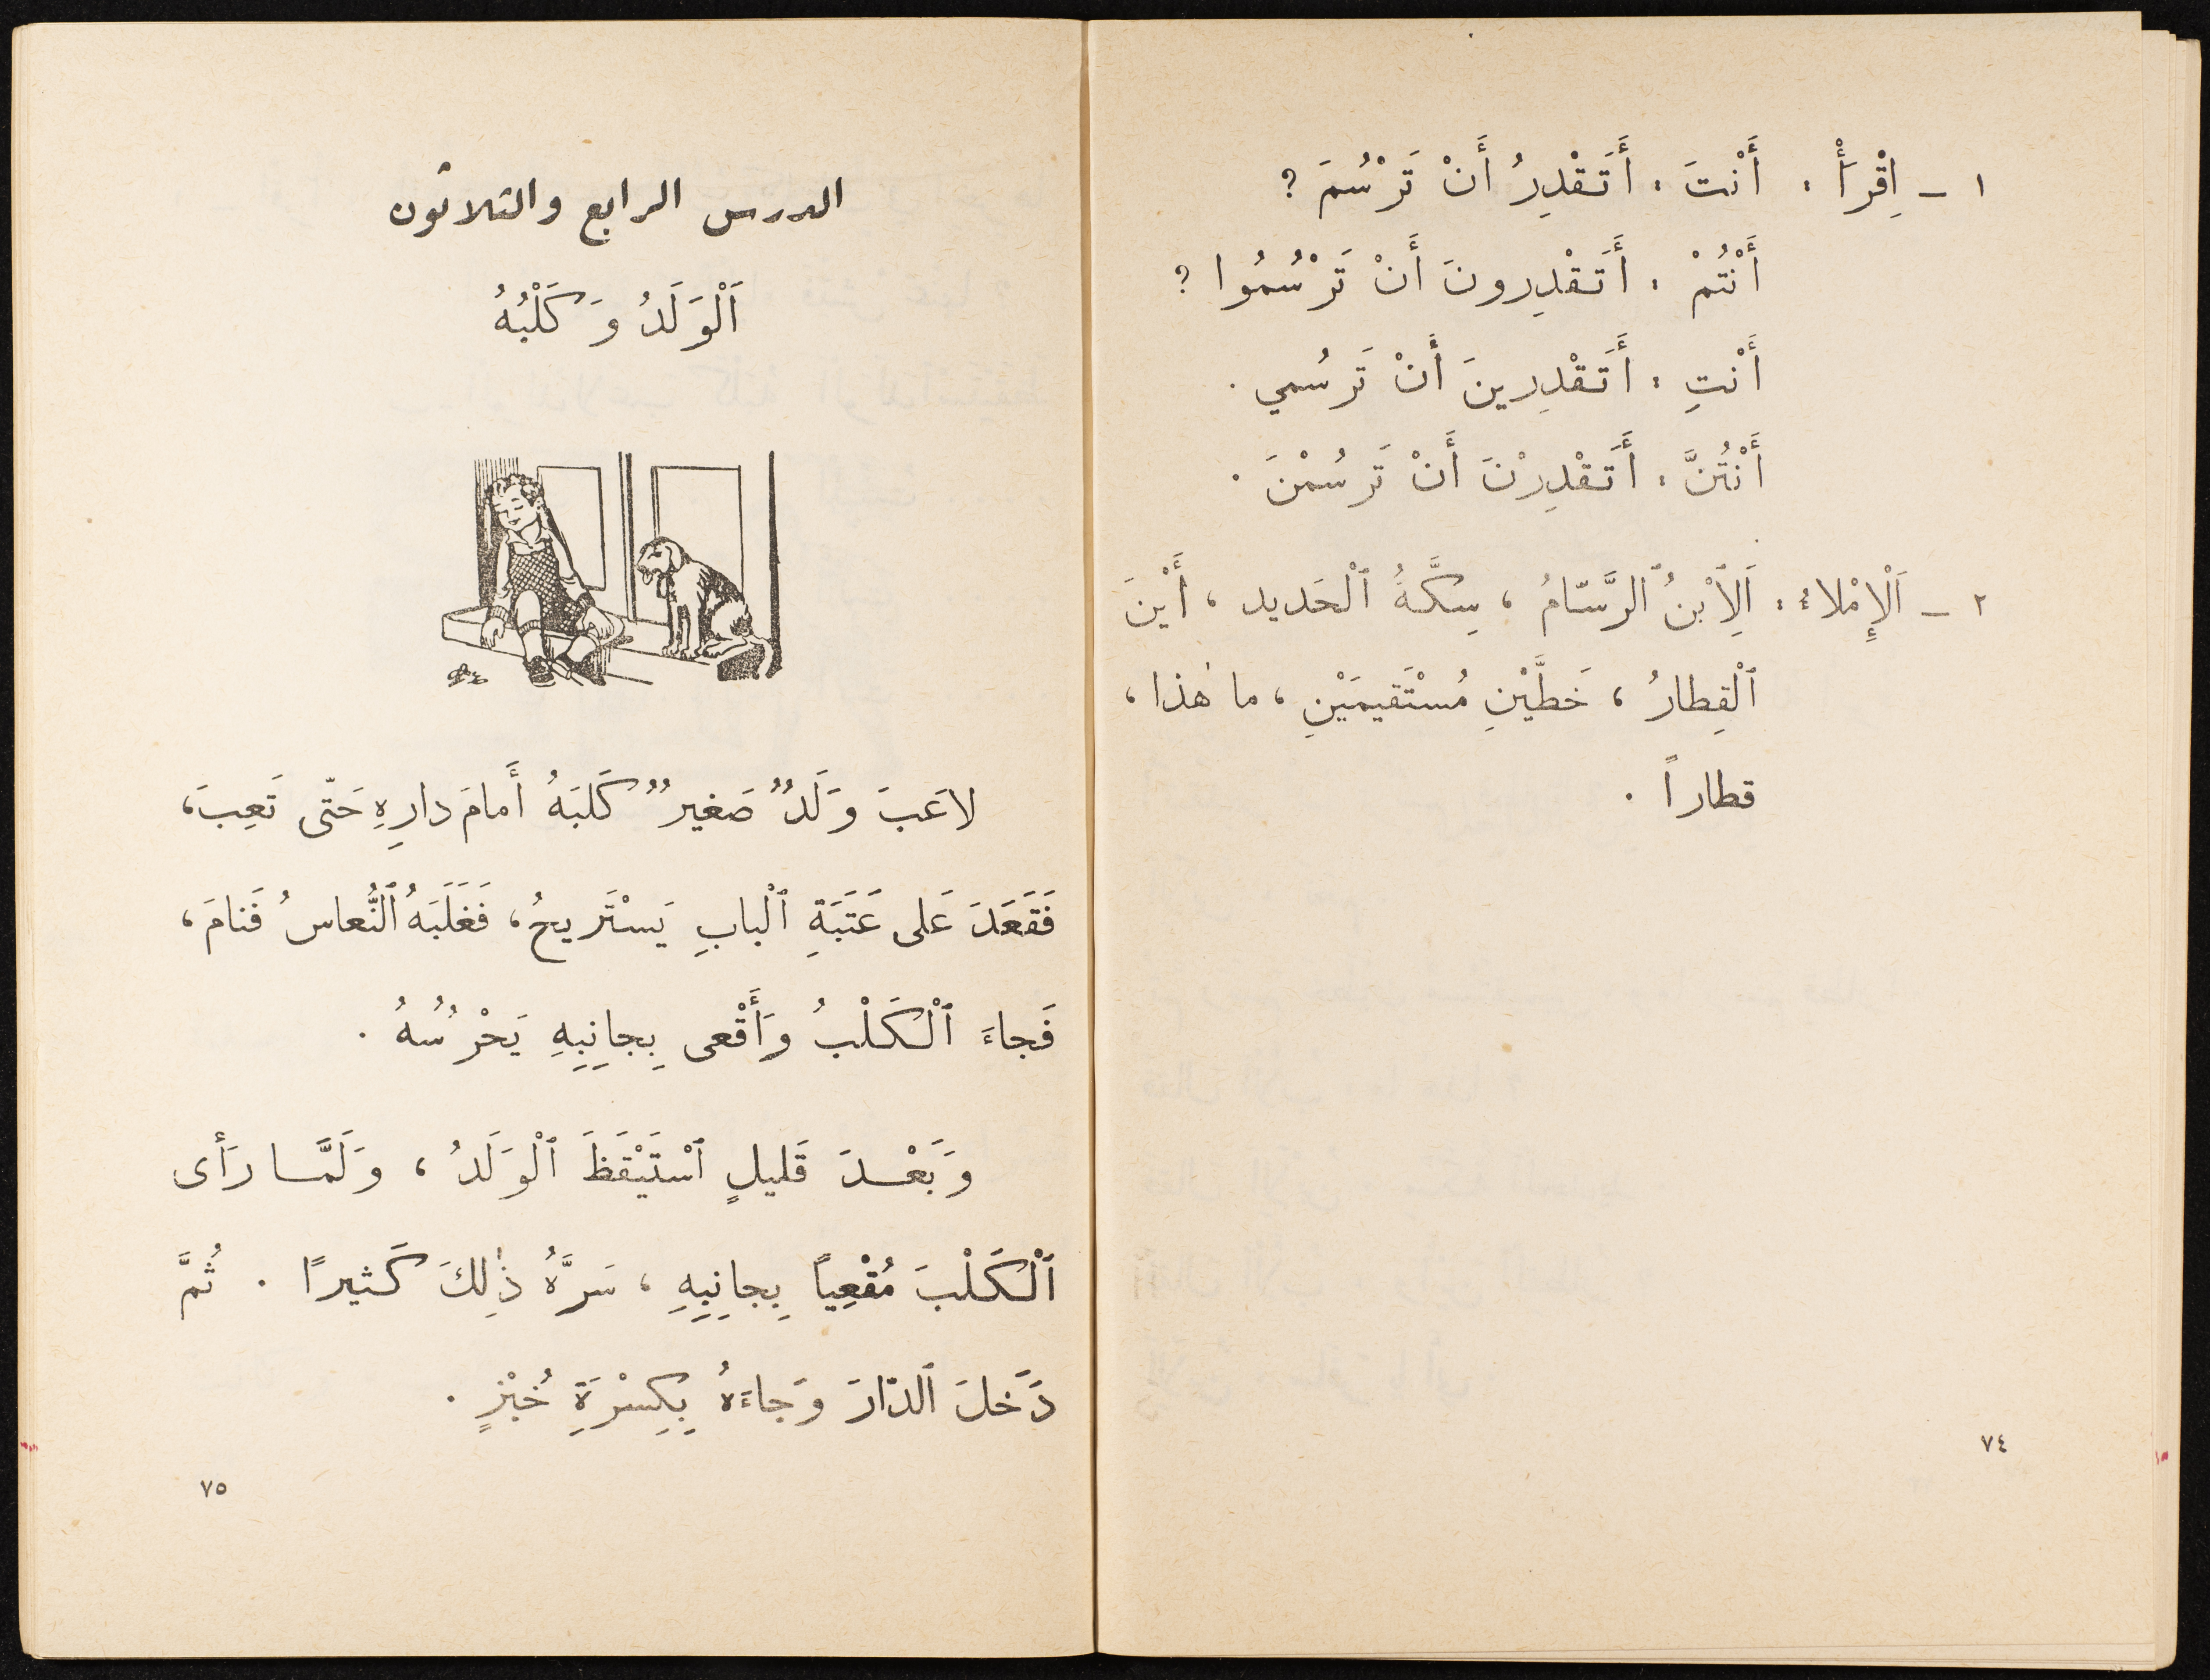 ١ – اِقْرَأْ : أَنْتَ : أَتَقْدِرُ أَنْ تَرْسُمَ ؟
أَنْتُمْ : أَتَقْدِرونَ أَنْ تَرْسُمُوا ؟
أَنْتِ : أَتَقْدِرينَ أَنْ تَرسُمي .
أَنْتُنَّ : أَتَقْدِرْنَ أَنْ تَرسُمْنَ .
٢ – اَلْإِمْلاءُ : اَلِٱبْنُ ٱلرَّسّامُ ، سِكَّةُ ٱلْحَديد ، أَيْنَ
ٱلْقِطارُ ، خَطَّيْنِ مُسْتَقيمَيْنِ ، ما هٰذا ،
قطاراً .
٧٤
الدرس الرابع والثلاثون
اَلْوَلَدُ وَكَلْبُهُ
لاعَبَ وَلَدٌ صَغيرٌ كَلبَهُ أَمامَ دارِهِ حَتّى تَعِبَ،
فَقَعَدَ عَلى عَتَبَةِ ٱلْبابِ يَسْتَريحُ، فَغَلَبَهُ ٱلنُّعاسُ فَنامَ،
فَجاءَ ٱلْكَلْبُ وَأَقْعى بِجانِبِهِ يَحْرُسُهُ .
وَبَعْدَ قَليلٍ ٱسْتَيْقَظَ ٱلْوَلَدُ ، وَلَمَّا رَأى
ٱلْكَلْبَ مُقْعِياً بِجانِبِهِ ، سَرَّهُ ذٰلِكَ كَثيرًا . ثُمَّ
دَخَلَ ٱلدّارَ وَجاءَهُ بِكِسْرَةِ خُبْزٍ .
٧٥